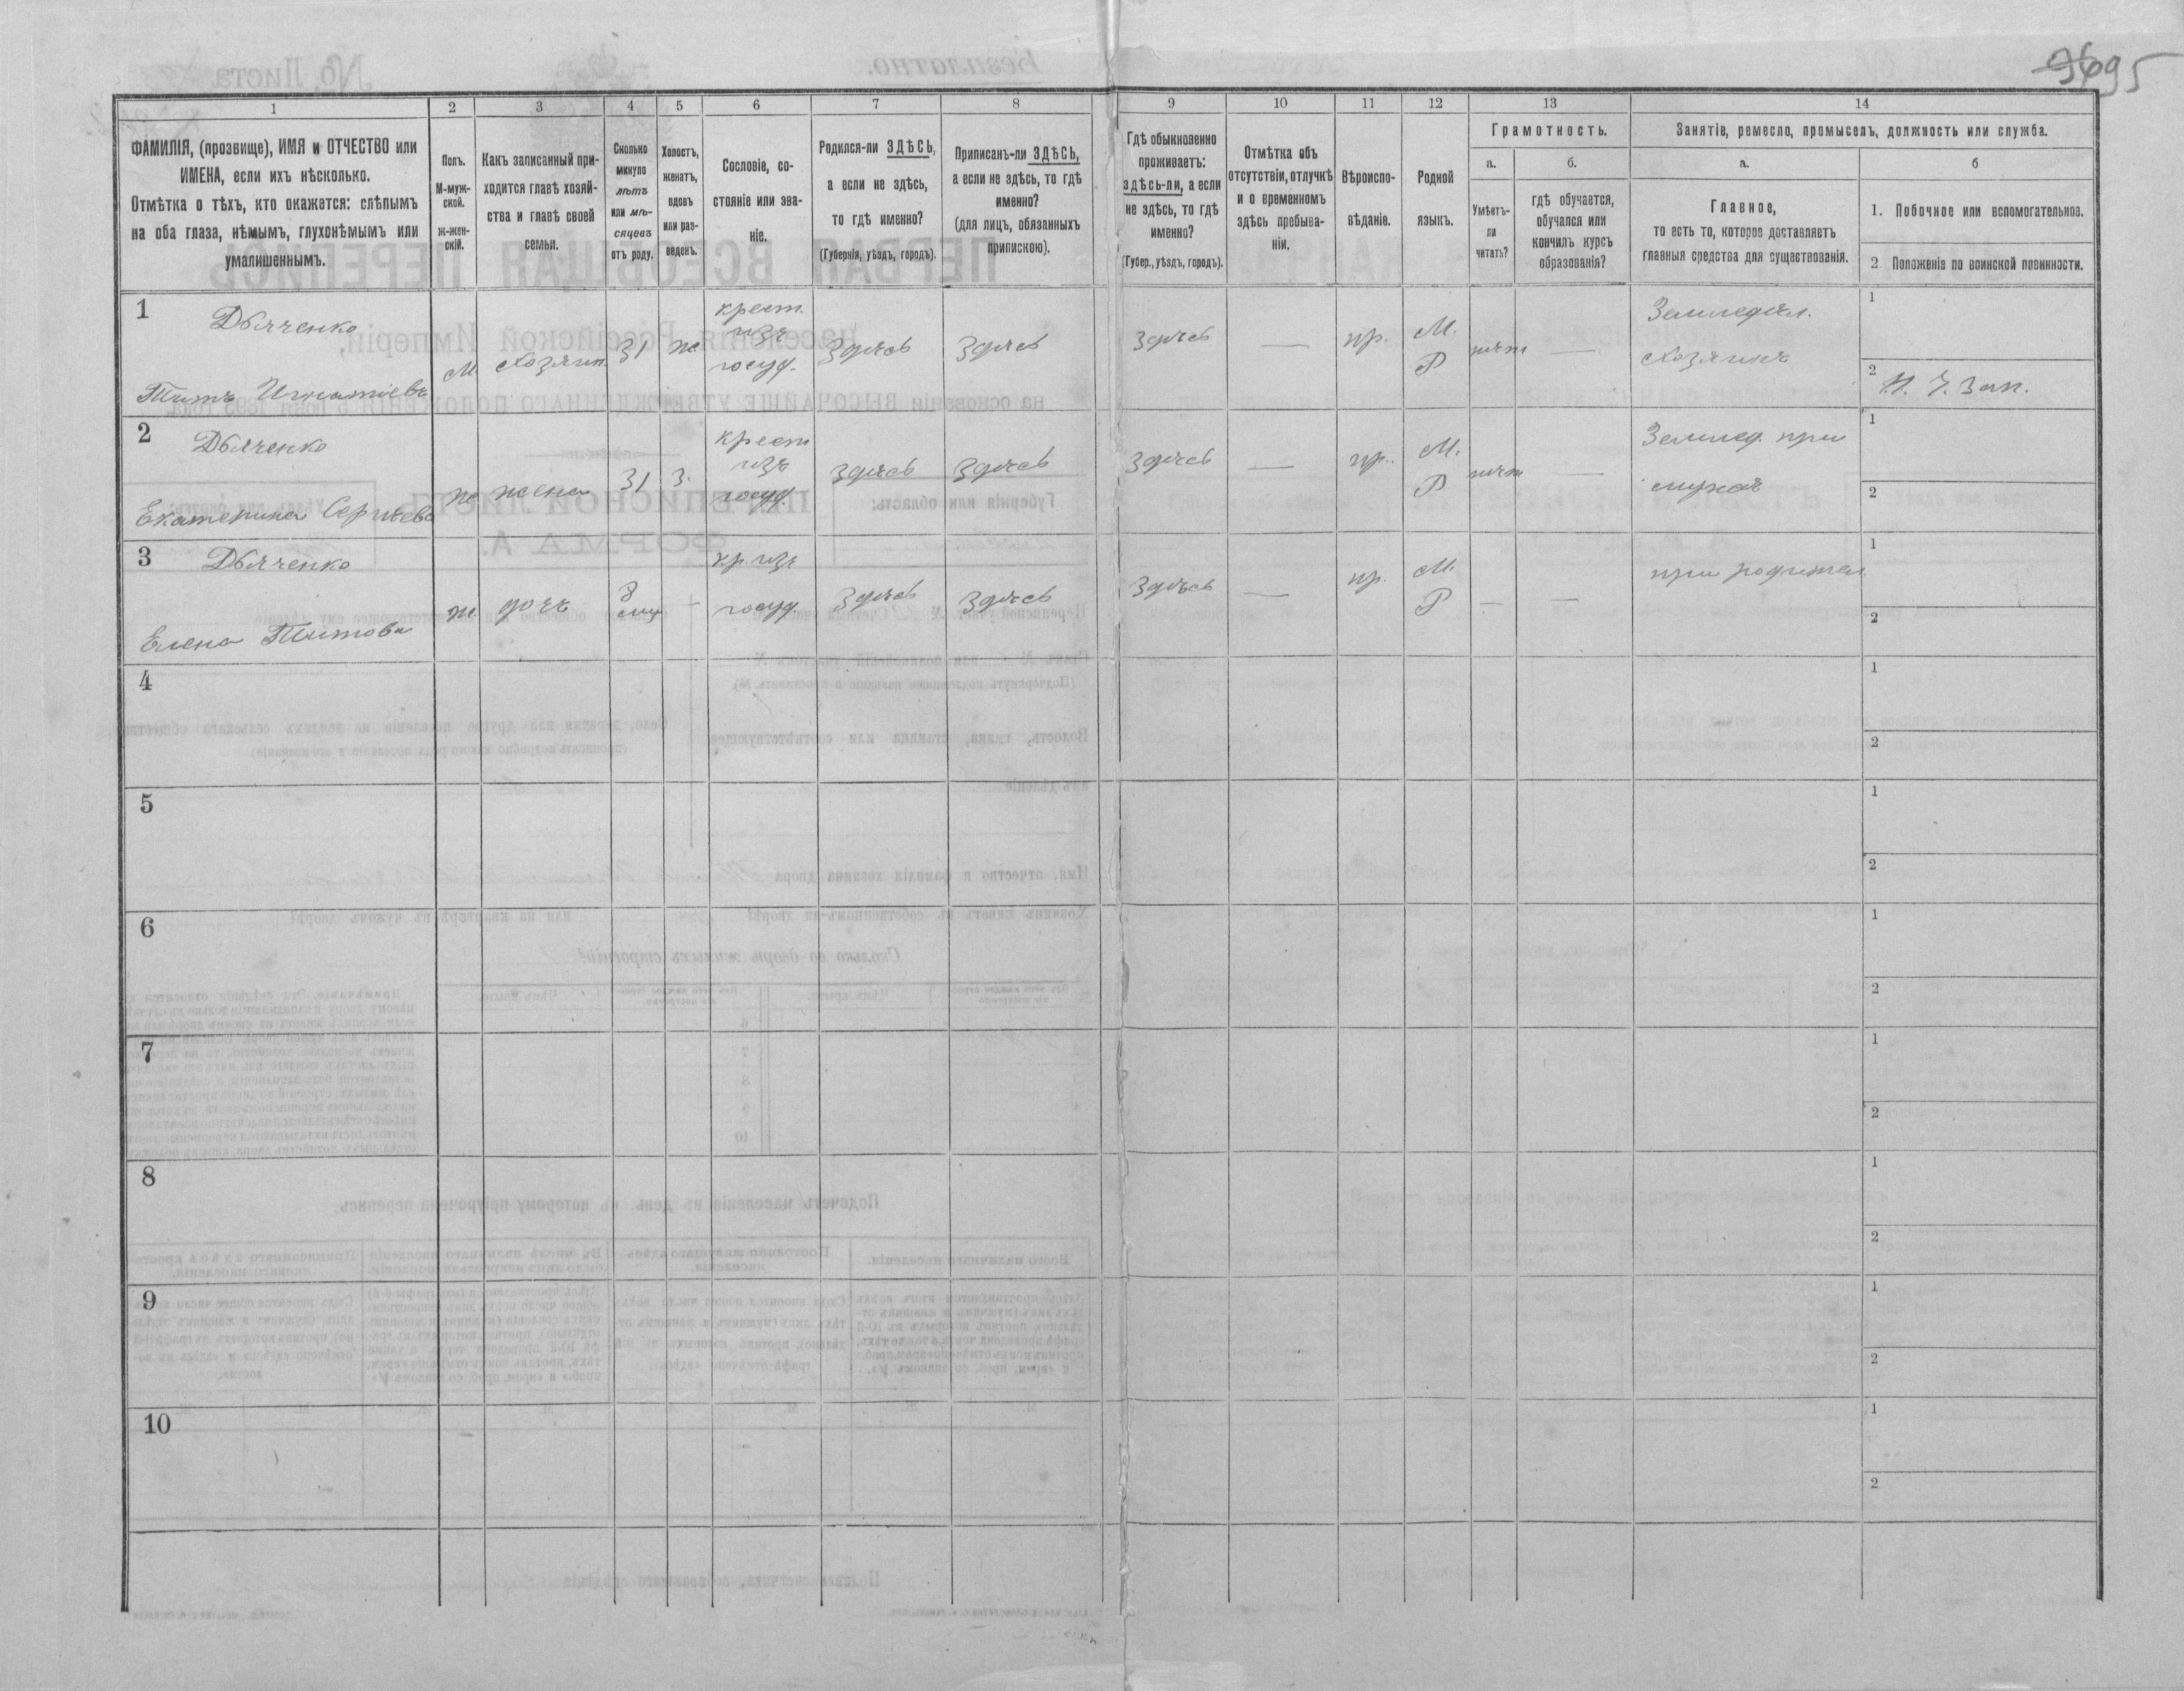 9695
1
2
3
4
5
6
7
8
9
10
11
12
13
14
ФАМИЛІЯ, (прозвище), ИМЯ и ОТЧЕСТВО или
ИМЕНА, если ихъ нѣсколько.
Отмѣтка о тѣхъ, кто окажется: слѣпымъ
на оба глаза, нѣмымъ, глухонѣмымъ или
умалишеннымъ.
Полъ.
М-муж-
ской.
ж-жен-
скій.
Какъ записанный при-
ходится главѣ хозяй-
ства и главѣ своей
семьи.
Сколько
минуло
лѣтъ
или мѣ-
сяцевъ
отъ роду.
Холостъ,
женатъ,
вдовъ
или раз-
веденъ.
Сословіе, со-
стояніе или зва-
ніе.
Родился-ли ЗДѢСЬ,
а если не здѣсь,
то гдѣ именно?
(Губернія, уѣздъ, городъ).
Приписанъ-ли ЗДѢСЬ,
а если не здѣсь, то гдѣ
именно?
(для лицъ, обязанныхъ
припискою).
Гдѣ обыкновенно
проживаетъ:
здѣсь-ли, а если
не здѣсь, то гдѣ
именно?
(Губер., уѣздъ, городъ).
Отмѣтка объ
отсутствіи, отлучкѣ
и о временномъ
здѣсь пребыва-
ніи.
Вѣроиспо-
вѣданіе.
Родной
языкъ.
Грамотность.
а.
б.
Умѣетъ-
ли
читать?
гдѣ обучается,
обучался или
кончилъ курсъ
образованія?
Занятіе, ремесло, промыселъ, должность или служба.
а.
б
Главное,
то есть то, которое доставляетъ
главныя средства для существованія.
1. Побочное или вспомогательное.
2 Положеніе по воинской повинности.
1
Дьяченко
Титъ Игнатіевъ
М
Хозяин.
31
ж
крест.
изъ
госуд.
Здѣсь
Здѣсь
Здѣсь
—
пр.
М.
Р
нѣт
—
Земледѣл.
Хозяинъ
1
2
2
Дьяченко
Екатерина Сергѣева
ж
жена
31
З.
крест
изъ
госуд.
Здѣсь
Здѣсь
Здѣсь
—
пр.
М.
Р
нѣт
—
Землед. при
мужѣ
1
2
3
Дьяченко
Елена Титова
ж
дочь
8
—
кр. изъ
госуд.
Здѣсь
Здѣсь
Здѣсь
—
пр.
М.
Р
—
—
при родител.
1
2
4
1
2
5
1
2
6
1
2
7
1
2
8
1
2
9
1
2
10
1
2